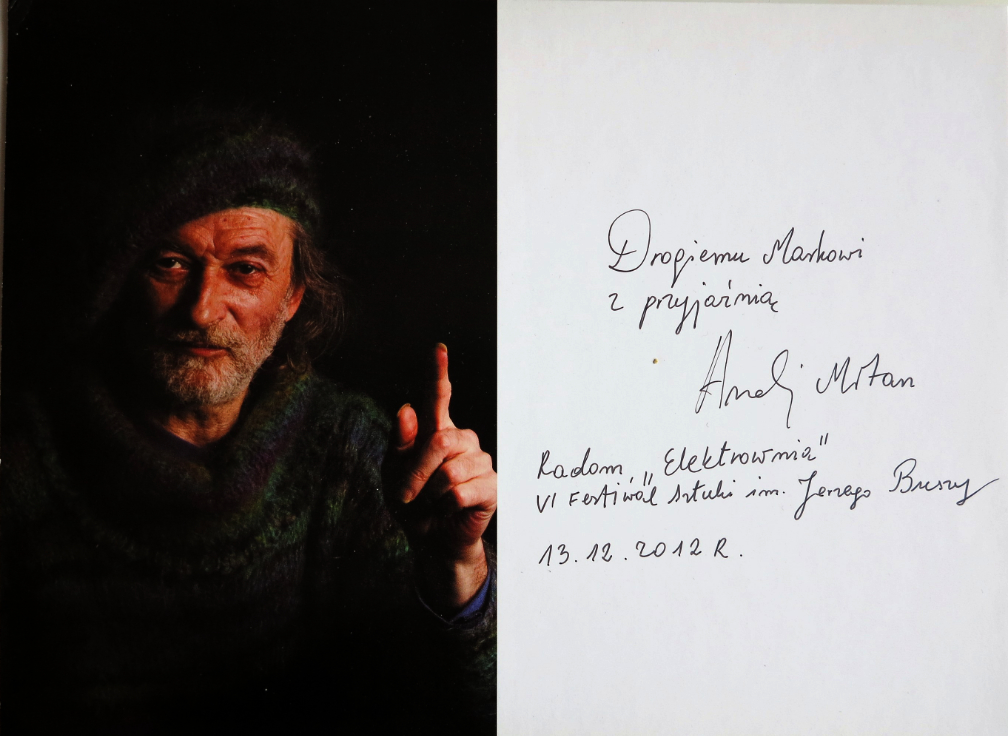 Drogiemu Markowi
z przyjaźnią
Andrzej Mitan
Radom „Elektrownia"
VI Festiwal Sztuki im. Jerzego Buszy
13.12.2012 R.